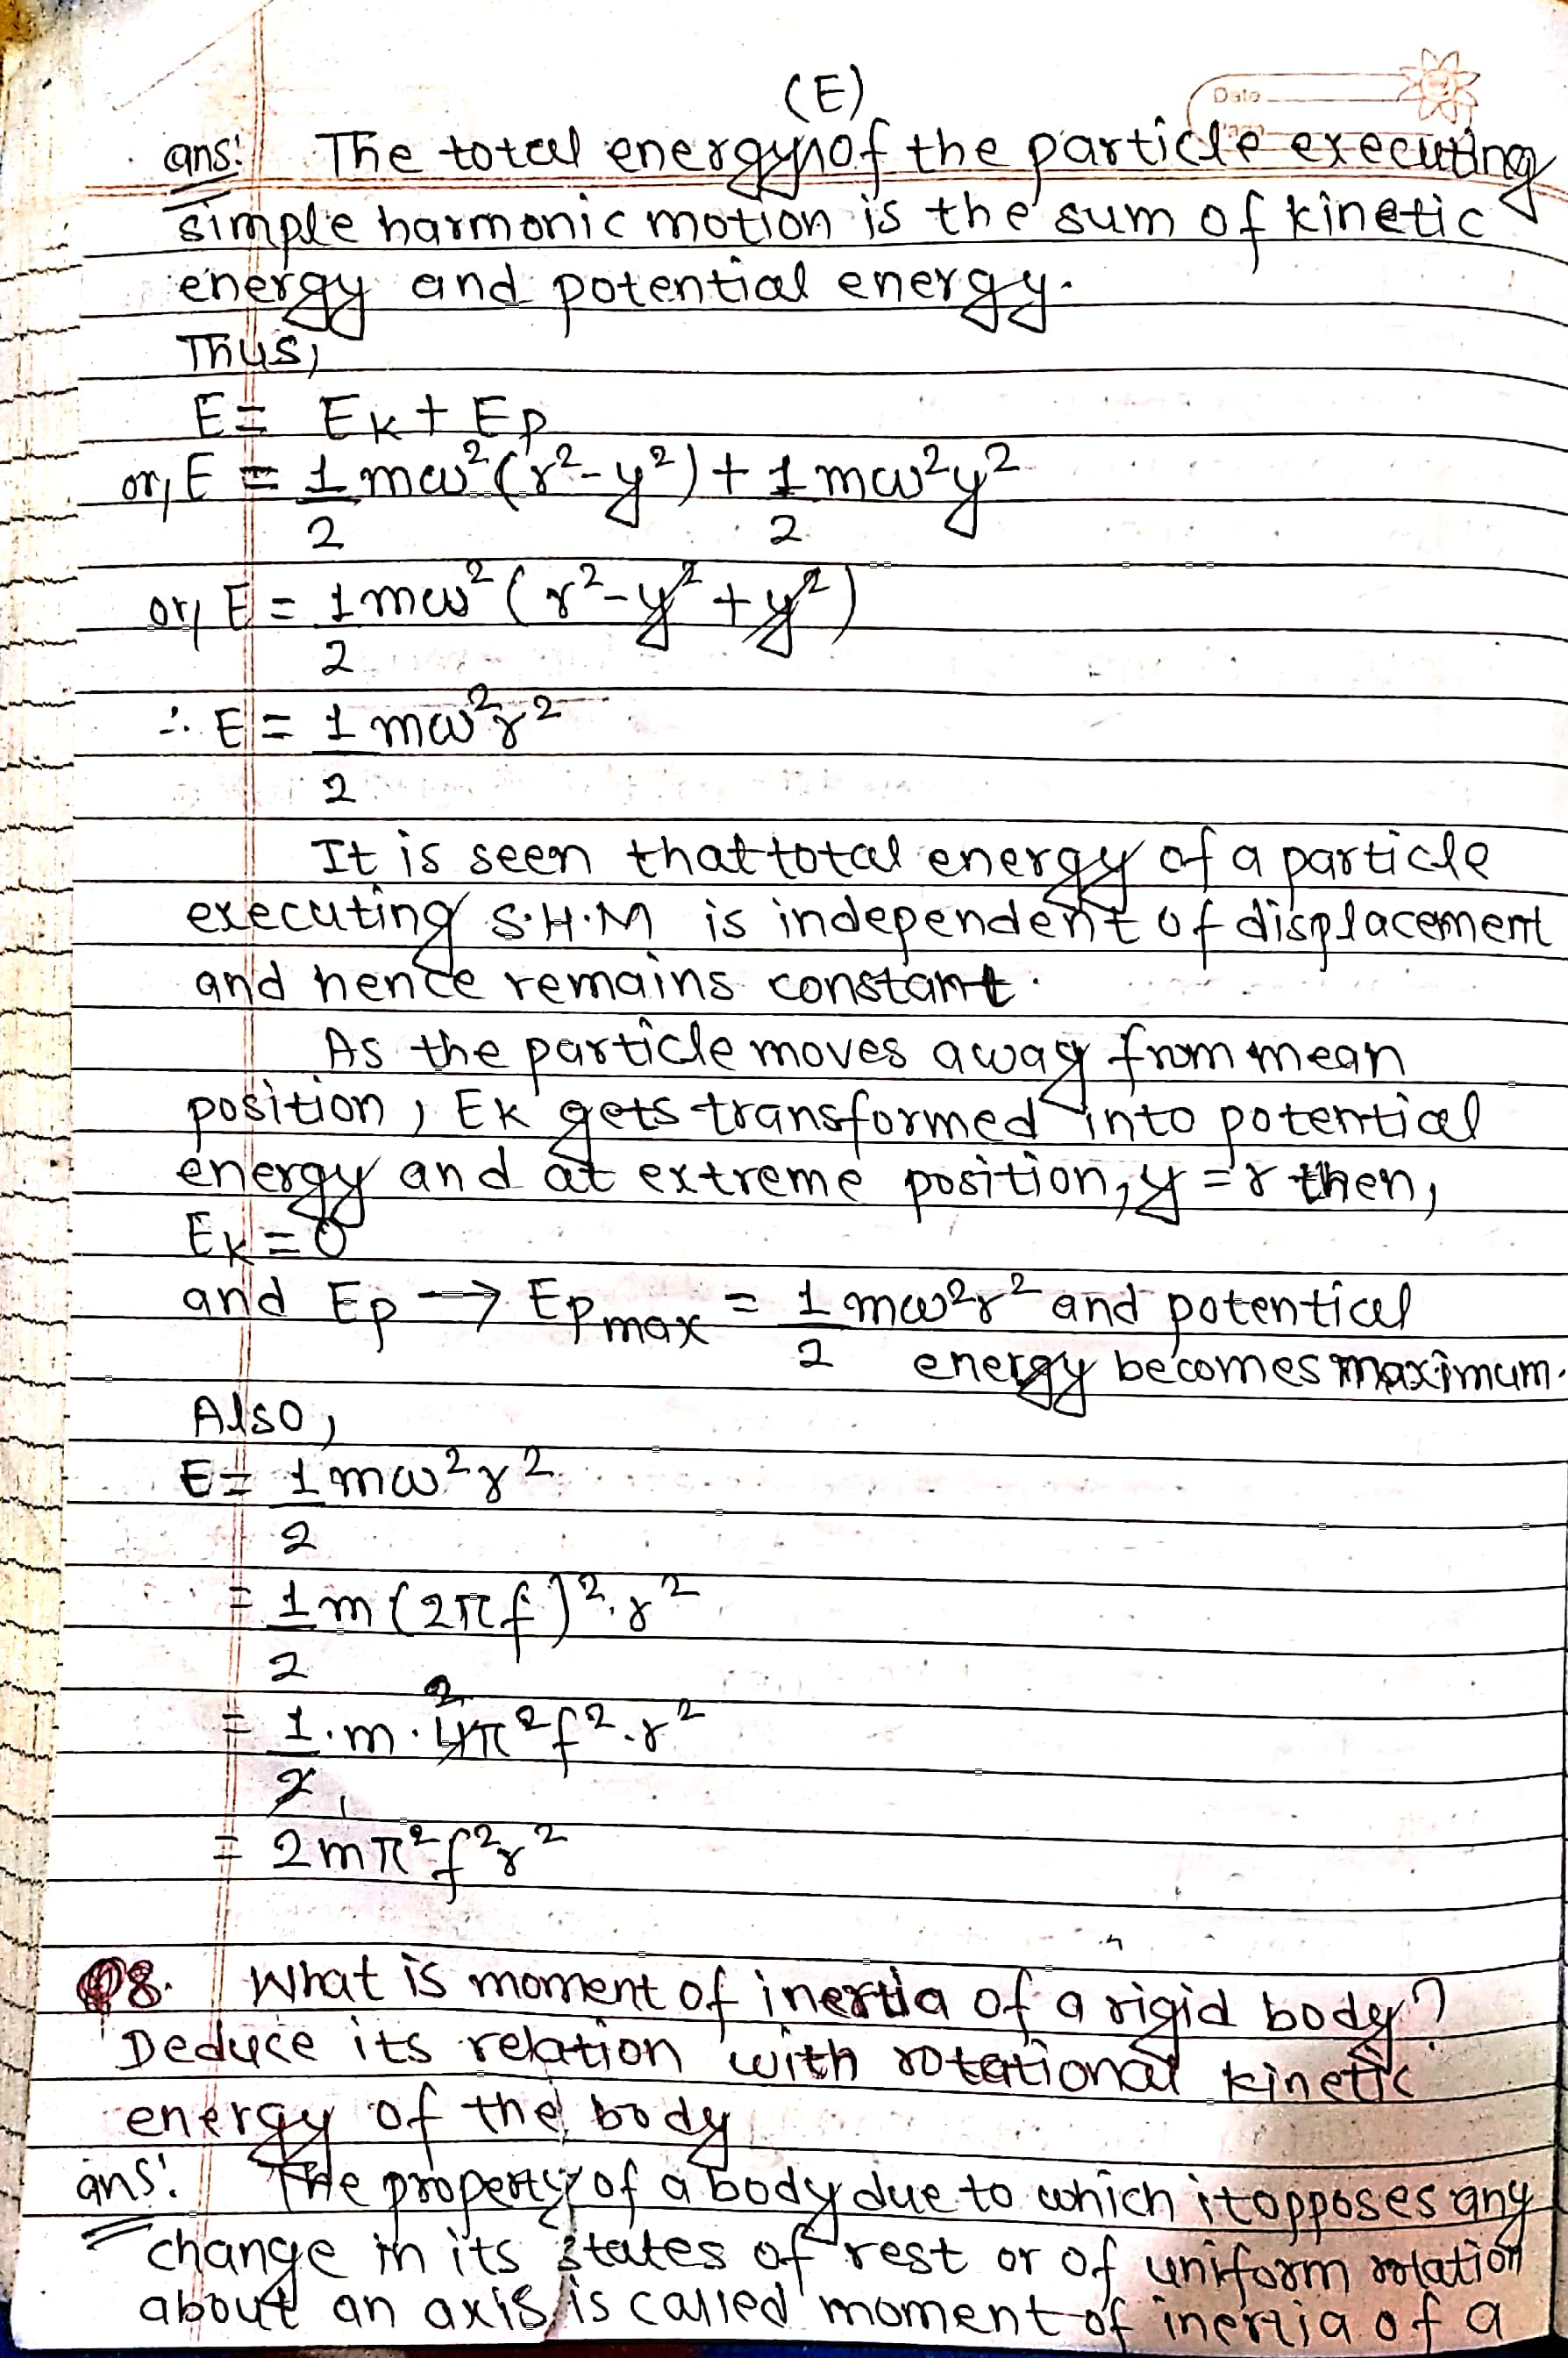 (E)
Date
ans: The total energy of the particle executing
simple harmonic motion is the sum of kinetic
energy and potential energy.
Thus,
E = Ek + Ep
or, E = 1/2 mω²(r²-y²) + 1/2 mω²y²
or, E = 1/2 mω²(r²-y²+y²)
∴ E = 1/2 mω²r²
It is seen that total energy of a particle
executing S.H.M is independent of displacement
and hence remains constant.
As the particle moves away from mean
position, Ek gets transformed into potential
energy and at extreme position, y = r then,
Ek = 0
and Ep → Epmax = 1/2 mω²r² and potential
energy becomes maximum.
Also,
E = 1/2 mω²r²
= 1/2 m(2πf)².r²
= 1/2 . m . 4π²f².r²
= 2mπ²f²r²
Q8. What is moment of inertia of a rigid body?
Deduce its relation with rotational kinetic
energy of the body
ans: The property of a body due to which it opposes any
change in its states of rest or of uniform rotation
about an axis is called moment of inertia of a